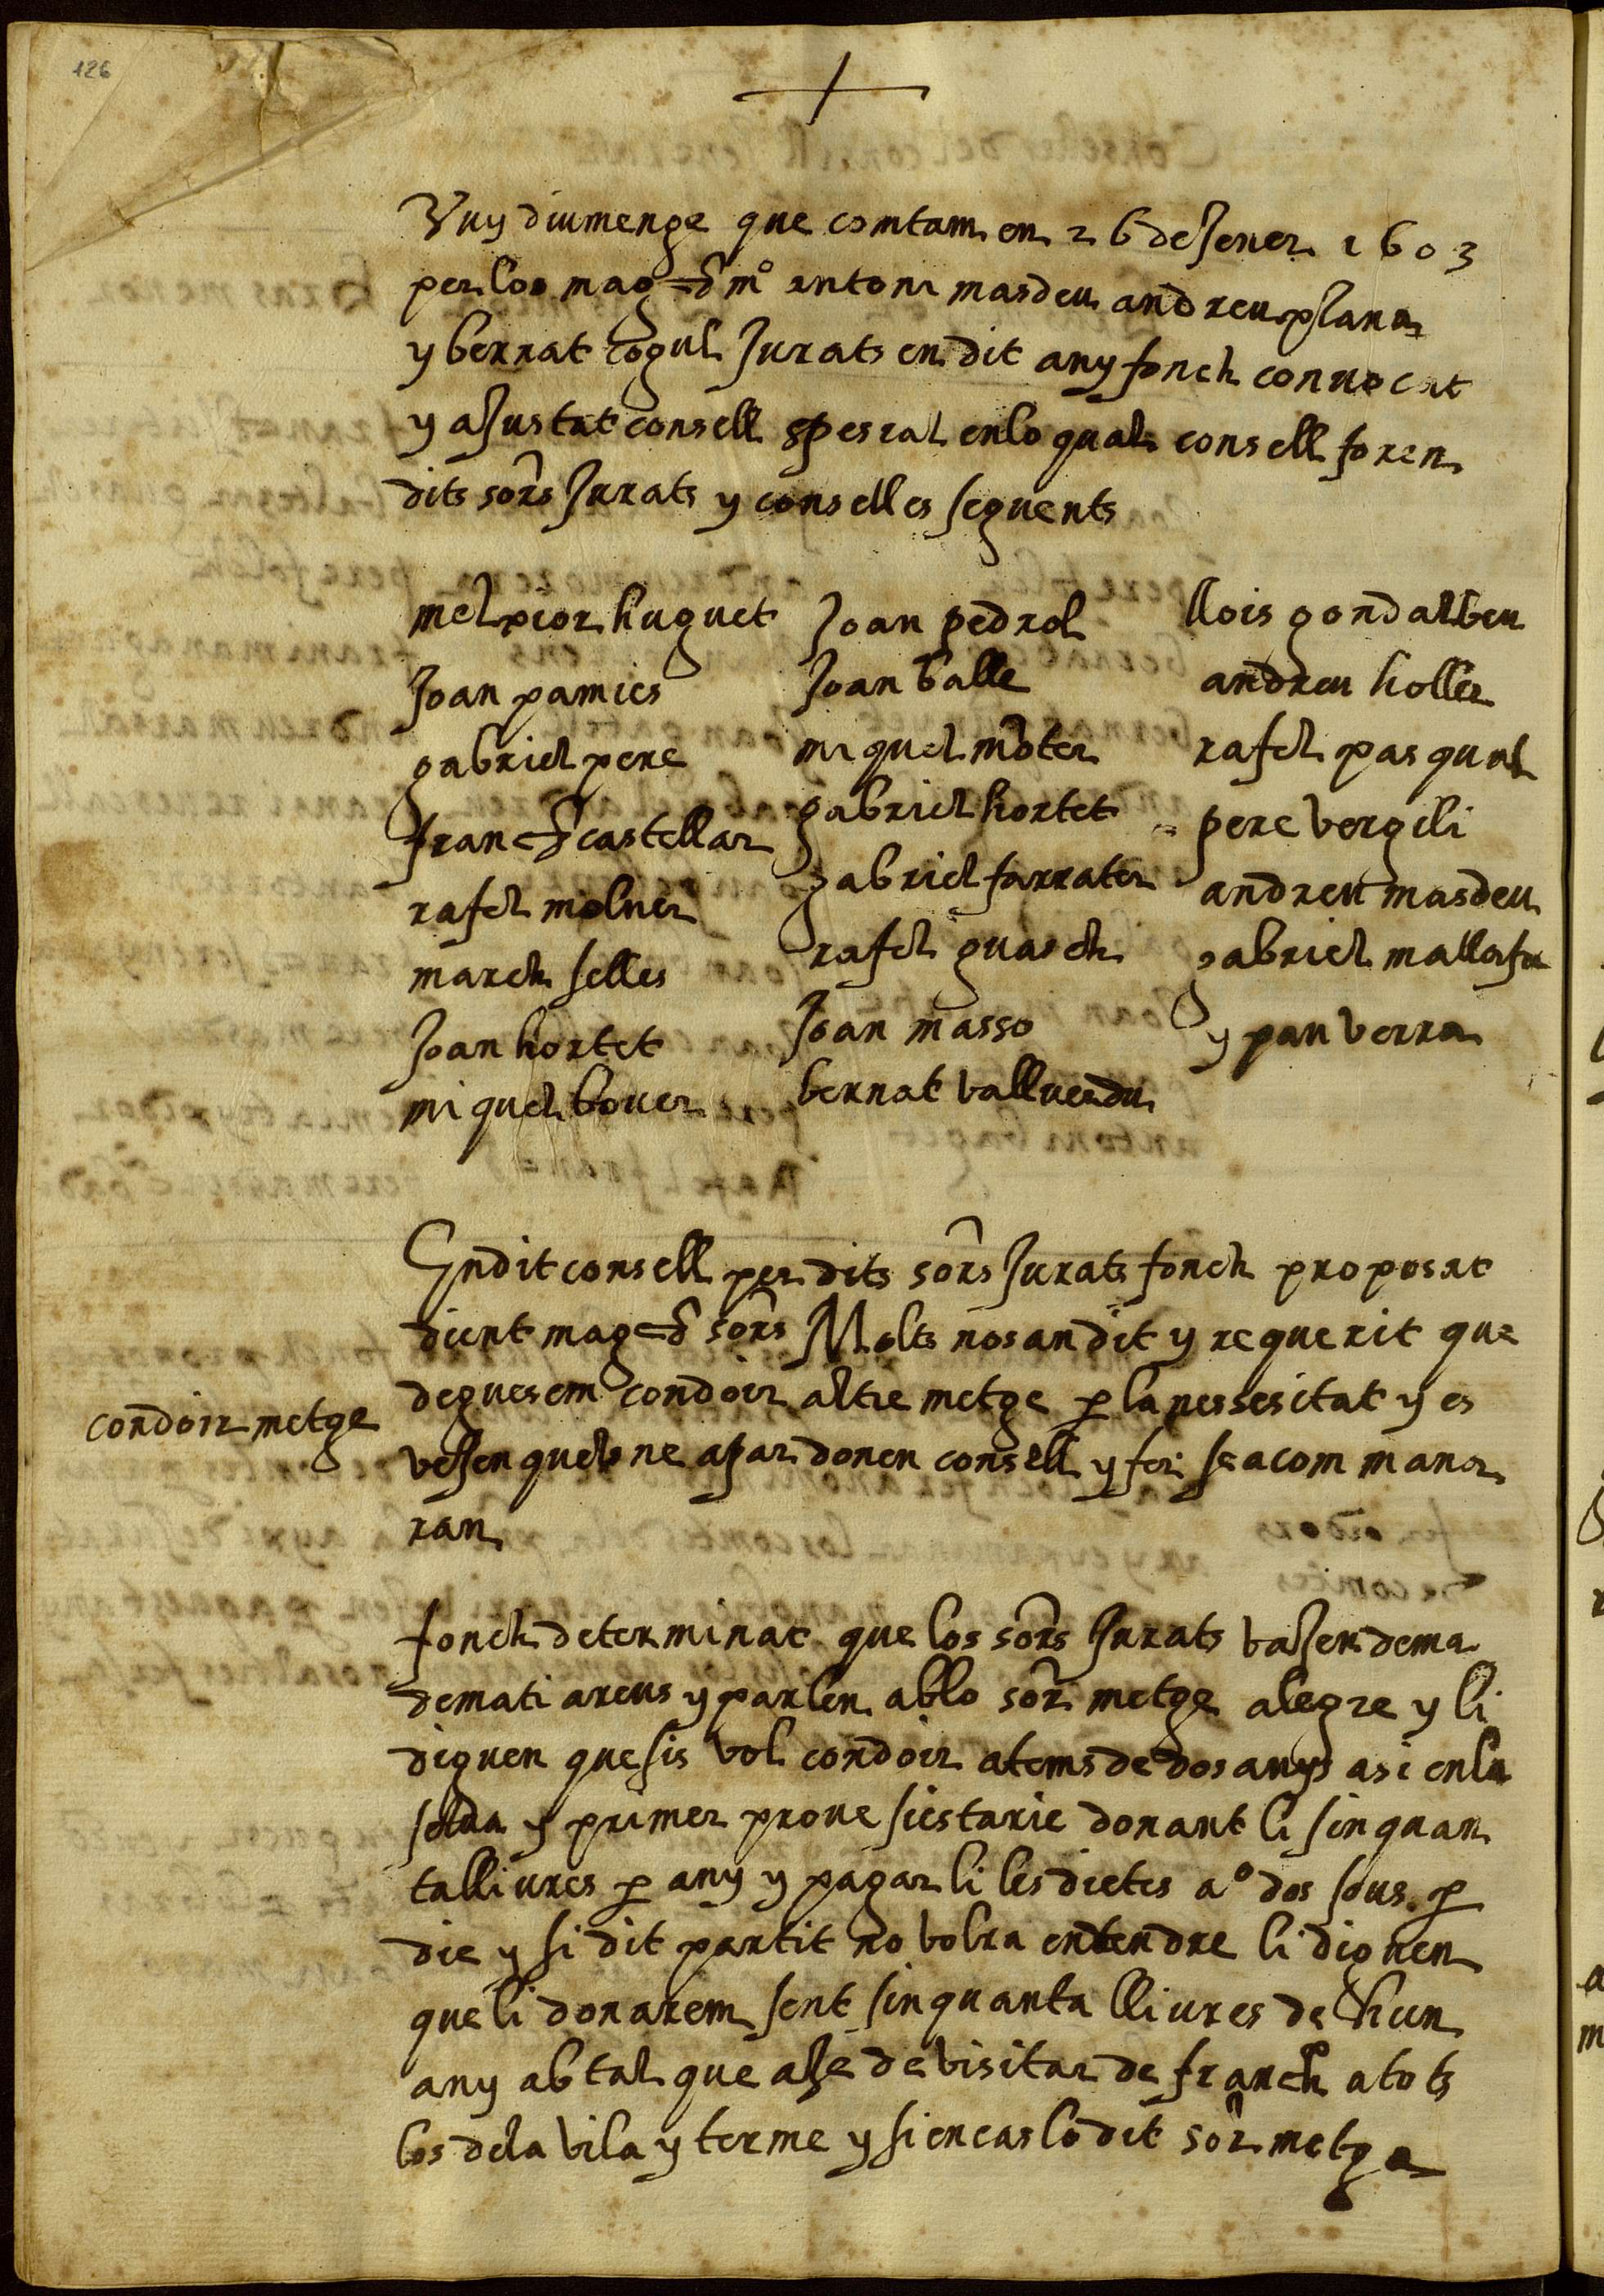 126
Vuy diumenge que comtam en 26 de Jener 1603
per los mag⁠cs mº antoni masdeu andreu plana
y bernat cogul Jurats en dit any fonch convocat
y aJustat consell spesial en lo qual consell foren
dits sors Jurats y conselles seguents
melpior huguet
Joan pamies
gabriel pere
franch castellar
rafel molner
march selles
Joan hortet
miquel bover
Joan pedrol
Joan balle
miquel moter
gabriel hortet
gabriel farrater
rafel guasch
Joan masso
bernat vallverdu
llois gondalbeu
andreu holler
rafel pasqual
pere vergili
andreu masdeu
gabriel mallafre
y pau verra
En dit consell per dits sors Jurats fonch proposat
dient mag⁠cs sors Molts nos an dit y requerit que
deguesem condoir altre metge p la nessesitat y es
condoir metge
veJen quels ne apar donen consell y fer se a com mana
ran
fonch determinat que los sors Jurats vaJen dema
demati a reus y parlen ab lo sor metge alegre y li
diguen que sis vol condoir a tems de dos anys asi en la
selva y primer prove si estarie donant li sinquan
ta lliures p any y pagar li les dietes aº dos sous p
die y si dit partit no volra entendre li diguen
que li donarem sent sinquanta lliures de hun
any ab tal que aJe de visitar de franch a tots
los de la vila y terme y si en cas lo dit sor metge